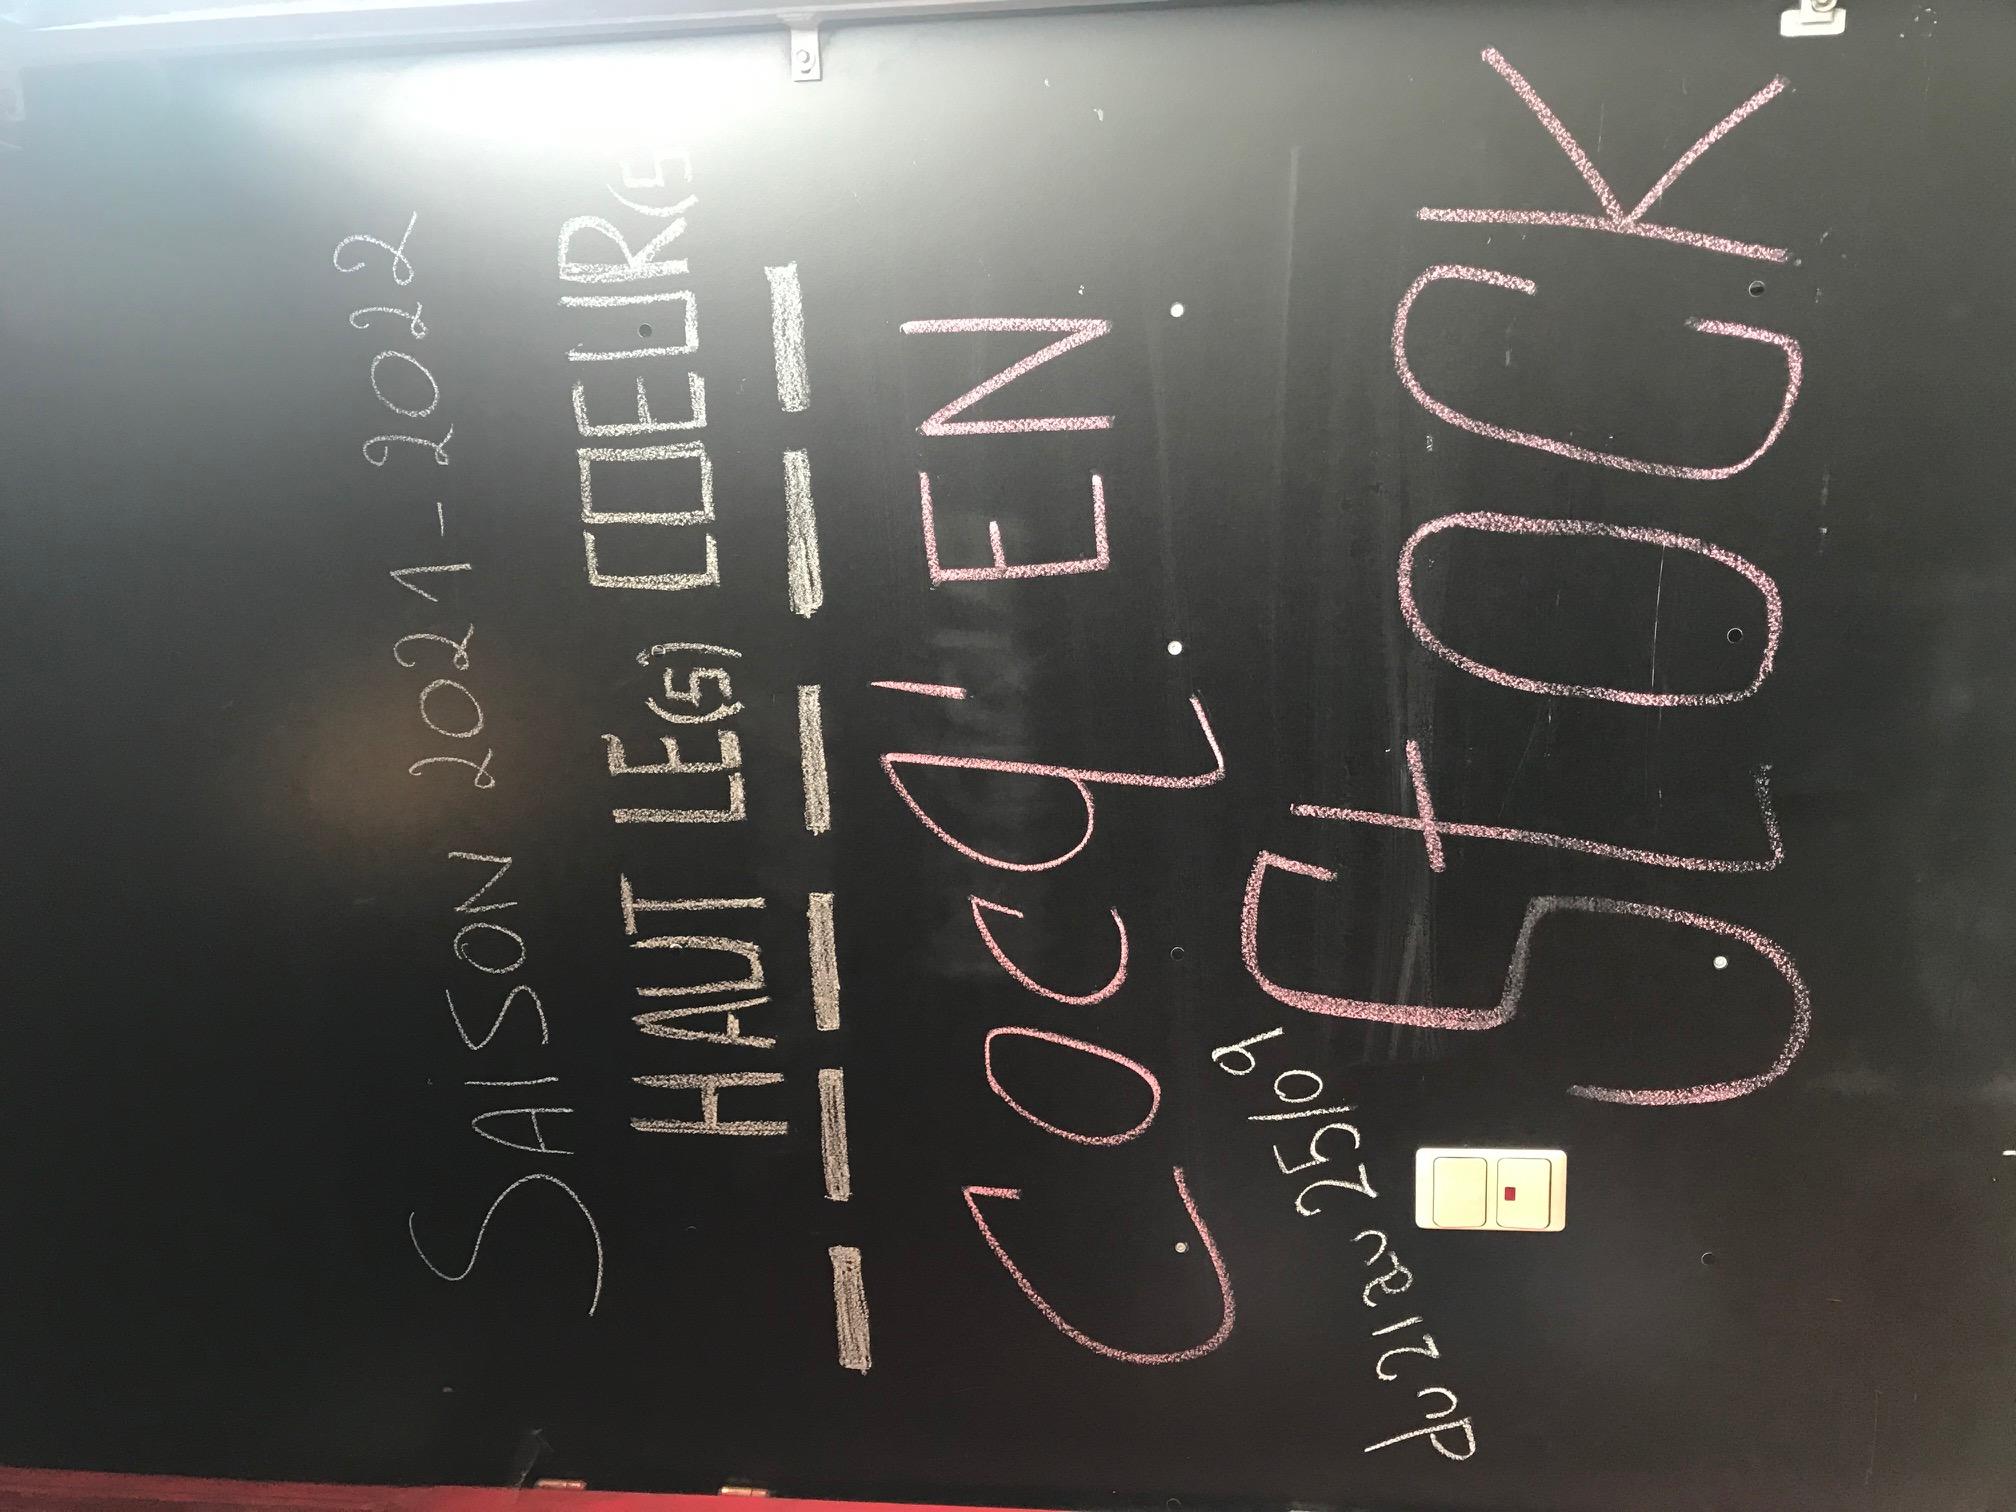 SAISON 2021-2022
HAUT LE(S) COEUR(S
COCQ'EN
StOCK
du 21 au 25/09